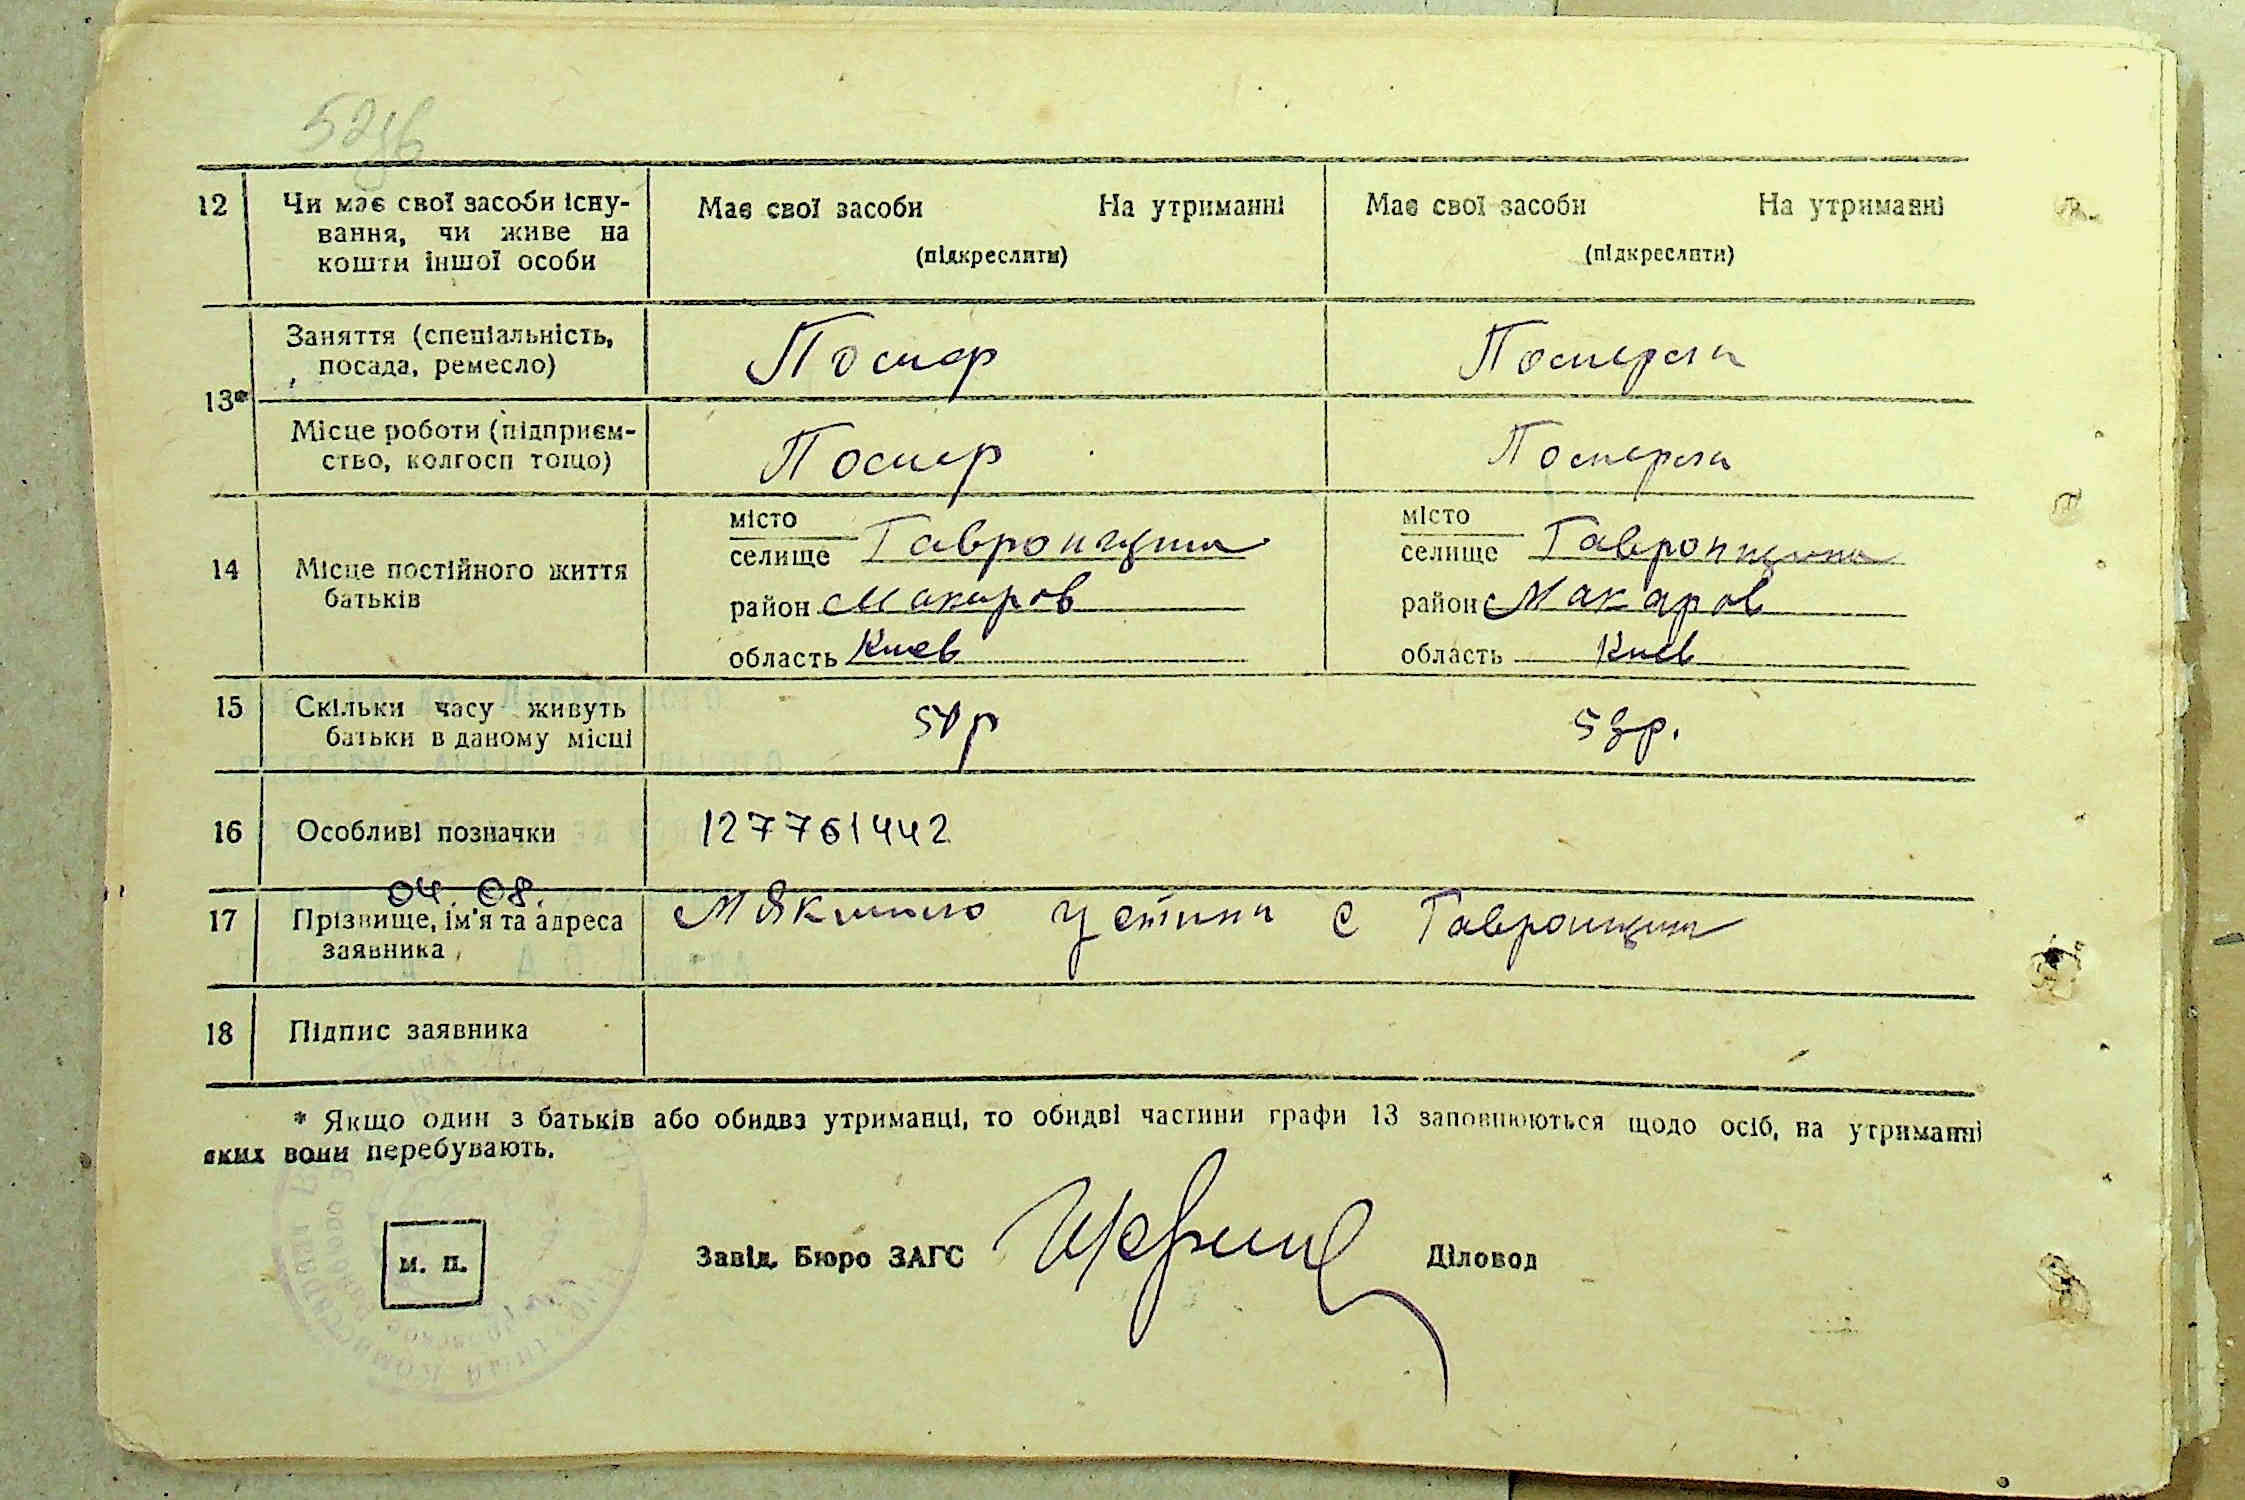 52зв
12 Чи має свої засоби існу- Має свої засоби На утриманні Має свої засоби На утриманні
вання, чи живе на (підкреслити) (підкреслити)
кошти іншої особи
13* Заняття (спеціальність, Помер Померла
посада, ремесло)
Місце роботи (підприєм- Помер Померла
ство, колгосп тощо)
14 Місце постійного життя місто місто
батьків селище Гавронщина селище Гавронщина
район Макаров район Макаров
область Киев область Киев
15 Скільки часу живуть 50р 53р.
батьки в даному місці
16 Особливі позначки 127761442
04. 08.
17 Прізвище, ім'я та адреса Мякшило Устина с Гавронщина
заявника
18 Підпис заявника
* Якщо один з батьків або обидва утриманці, то обидві частини графи 13 заповнюються щодо осіб, на утриманні
яких вони перебувають.
м. п. Завід. Бюро ЗАГС Діловод